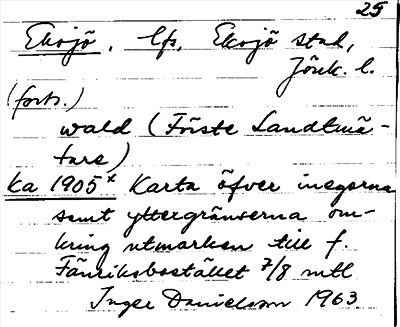 25
Eksjö, lfs, Eksjö stad,
Jönk. l.
(forts.)
wald (Förste Landtmä-
tare)
ka 1905x Karta öfver inegorna
samt yttergränserna om-
kring utmarken till f.
Fänriksbostället 7/8 mtl
Inger Danielson 1963